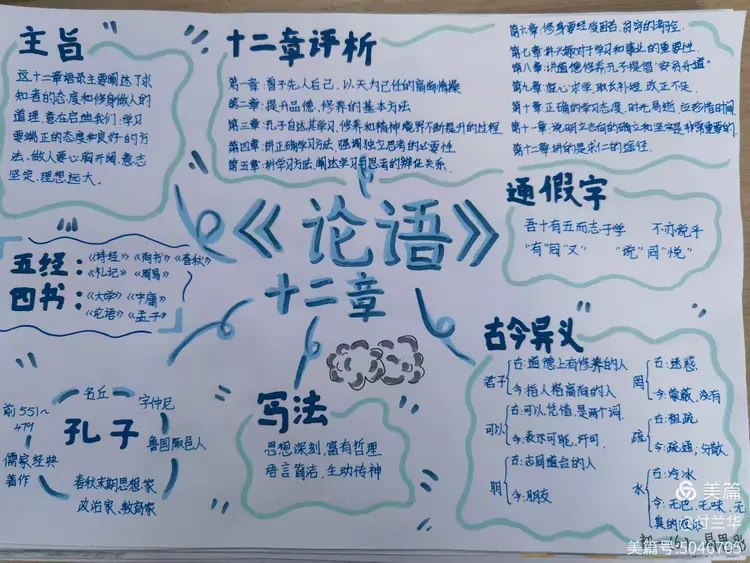 主旨
这十二章语录主要阐达了求
知者的态度和修身做人的
道理,意在启迪我们:学习
要端正的态度和良好的方
法,做人要心胸开阔,意志
坚定,理想远大。
十二章评析
第一章:曾子先人后己,以天为己任的高尚情操
第二章:提升品德,修养的基本方法
第三章:孔子自达其学习,修养和精神境界不断提升的过程
第四章:讲正确学习方法,强调独立思考的必要性
第五章:讲学习方法,阐达学习与思考的辩证关系.
第六章:修身要经受困苦、贫穷的考验.
第七章:讲兴趣对于学习和事业的重要性.
第八章:讲道德修养孔子提倡"安贫乐道"
第九章:虚心求学取长补短,改正不足.
第十章:正确的学习态度,时光易逝 应珍惜时间.
第十一章:说明立志向的确立和坚定是非常重要的.
第十二章:讲的是求仁的途径.
通假字
吾十有五而志于学 不亦说乎
"有"同"又" "说"同"悦"
《论语》
十二章
五经:《诗经》《尚书》《春秋》
《礼记》《周易》
四书:《大学》《中庸》
《论语》《孟子》
孔子
名丘
字仲尼
鲁国陬邑人
春秋末期思想家
政治家、教育家
儒家经典
著作
前551~
479
写法
思想深刻,富有哲理
语言简洁,生动传神
古今异义
君子
古:道德上有修养的人
今:指人格高尚的人
可以
古:可以凭借,是两个词.
今:表示可能,许可.
朋
古:志同道合的人
今:朋友
罔
古:迷惑
今:蒙蔽,没有
疏
古:粗疏
今:疏通,分散
水
古:冷水
今:无色、无味、无
臭的液体
美篇
付兰华
美篇号:5046705